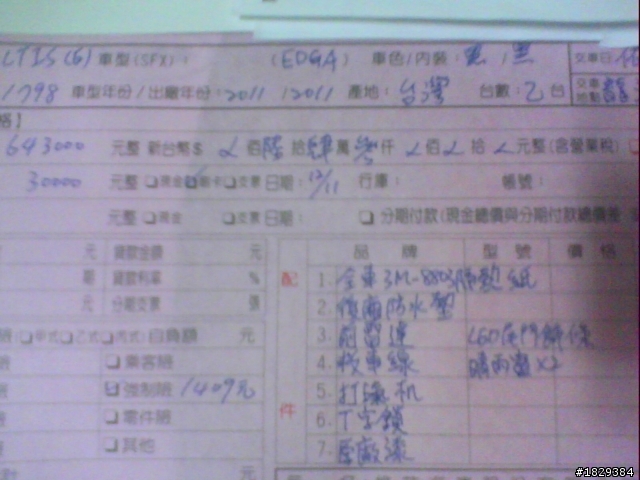 LTIS(G) 車型(SFX): (EDGA) 車色/內裝: 黑/黑 交車日
1798 車型年份/出廠年份:2011 /2011 產地: 台灣 台數: 乙 台 交車地點
格】
643000 元整 新台幣$ 佰陸拾肆萬參仟 佰 拾 元整(含營業稅)
30000 元整 現金 刷卡 支票 日期: 12/11 行庫: 帳號:
元整 現金 支票 日期: 分期付款(現金總價與分期付款總價差
元 貸款金額 元 品牌 型號 價格
期 貸款利率 % 配 1. 全車3M-8803隔熱紙
元 分期支票 張 2. 後廂防水墊
險(甲式 乙式 丙式)自負額 元 3. 前雷達 LED尾門飾條
險 乘客險 4. 倒車線 晴雨窗x2
險 強制險 1409元 5. 打氣机
零件險 件 6. 丁字鎖
其他 7. 原廠漆
#1829384